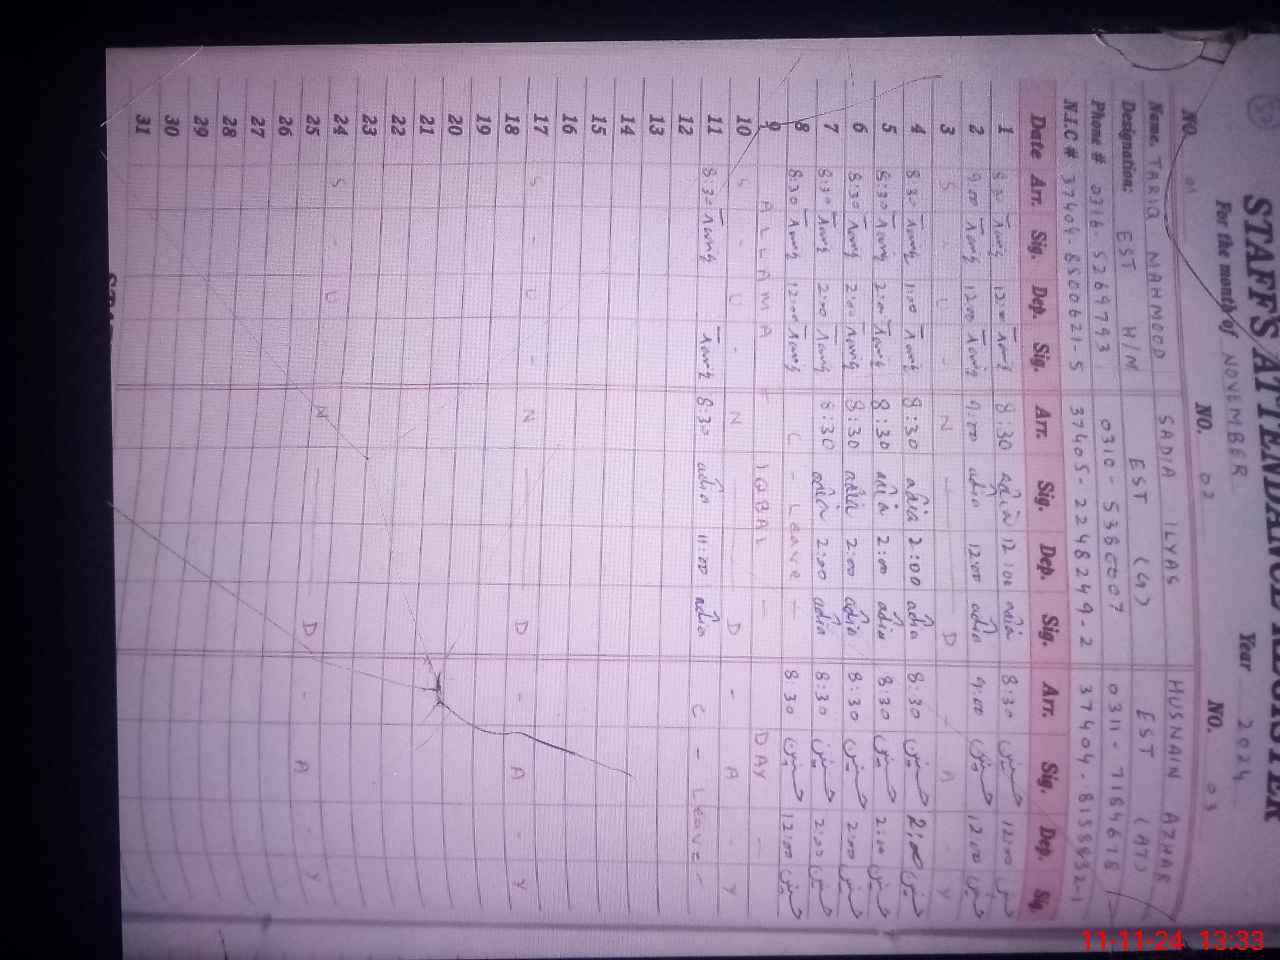 STAFF'S ATTENDANCE REGISTER
For the month of NOVEMBER Year 2024
NO. 01 NO. 02 NO. 03
Name. TARIQ MAHMOOD SADIA ILYAS HUSNAIN AZHAR
Designation: EST H/M EST (G) EST (AT)
Phone # 0316-5269793 0310-5360007 0311-7184618
N.I.C # 37404-8500621-5 37405-2248249-2 37404-8158832-1
Date Arr. Sig. Dep. Sig. Arr. Sig. Dep. Sig. Arr. Sig. Dep. Sig.
1 8:30 Tariq 12:00 Tariq 8:30 adia 12:00 adia 8:30 حسنین 12:00 حسنین
2 9:00 Tariq 12:00 Tariq 9:00 adia 12:00 adia 9:00 حسنین 12:00 حسنین
3 S - U - N - D - A - Y
4 8:30 Tariq 1:00 Tariq 8:30 adia 2:00 adia 8:30 حسنین 2:00 حسنین
5 8:30 Tariq 2:00 Tariq 8:30 adia 2:00 adia 8:30 حسنین 2:00 حسنین
6 8:30 Tariq 2:00 Tariq 8:30 adia 2:00 adia 8:30 حسنین 2:00 حسنین
7 8:30 Tariq 2:00 Tariq 8:30 adia 2:00 adia 8:30 حسنین 2:00 حسنین
8 8:30 Tariq 12:00 Tariq C - Leave - 8:30 حسنین 12:00 حسنین
9 ALLAMA IQBAL - DAY -
10 S - U - N - D - A - Y
11 8:30 Tariq Tariq 8:30 adia 11:00 adia C - Leave -
12
13
14
15
16
17 S - U - N - D - A - Y
18
19
20
21
22
23
24 S - U - N - D - A - Y
25
26
27
28
29
30
31
11-11-24 13:33